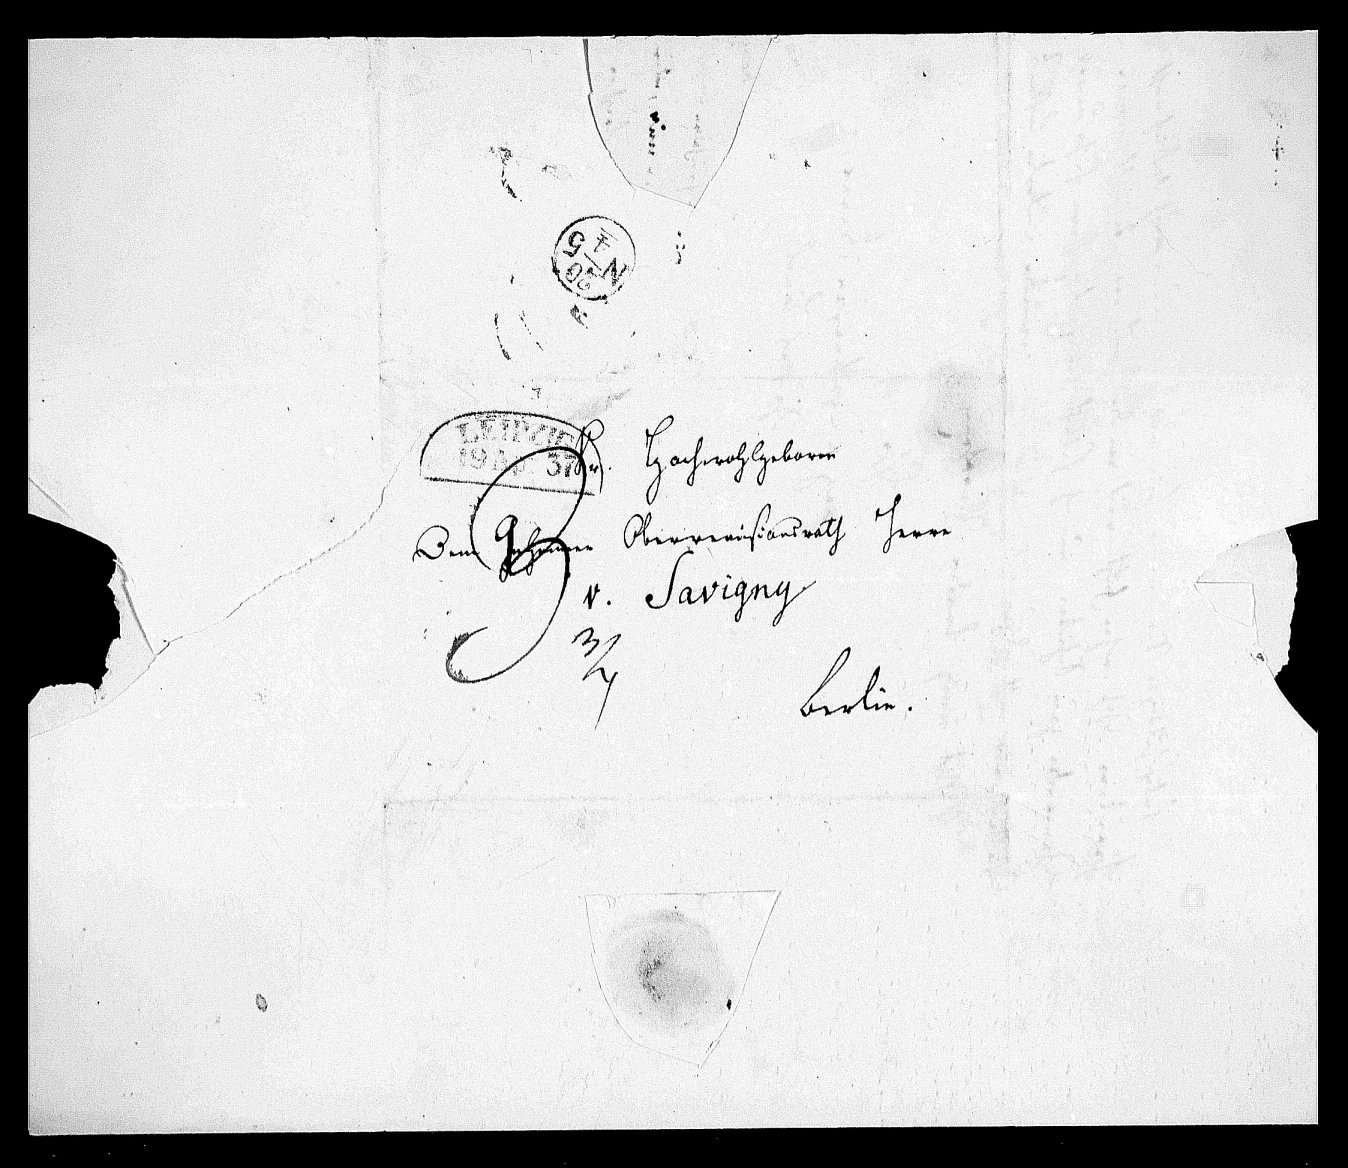 N 5
20 4
LEIPZIG
19 Ap. 37
Sr. Hochwohlgeboren
Dem Geheimen Oberrevisionsrath Herrn
v. Savigny
Berlin.